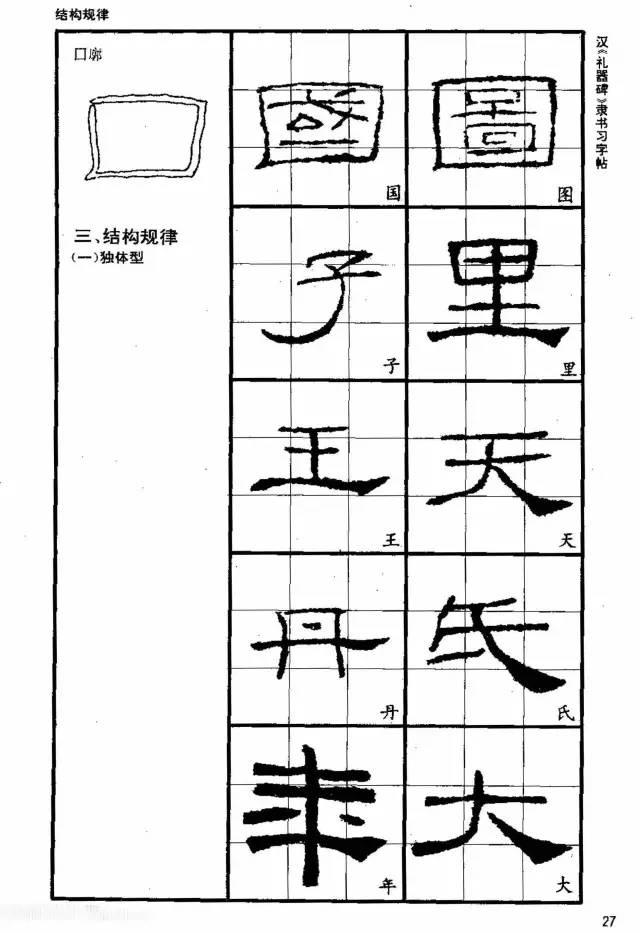 结构规律
汉《礼器碑》隶书习字帖
囗廓
三、结构规律
(一)独体型
國 圖
国 图
子 里
子 里
王 天
王 天
丹 氏
丹 氏
年 大
年 大
27